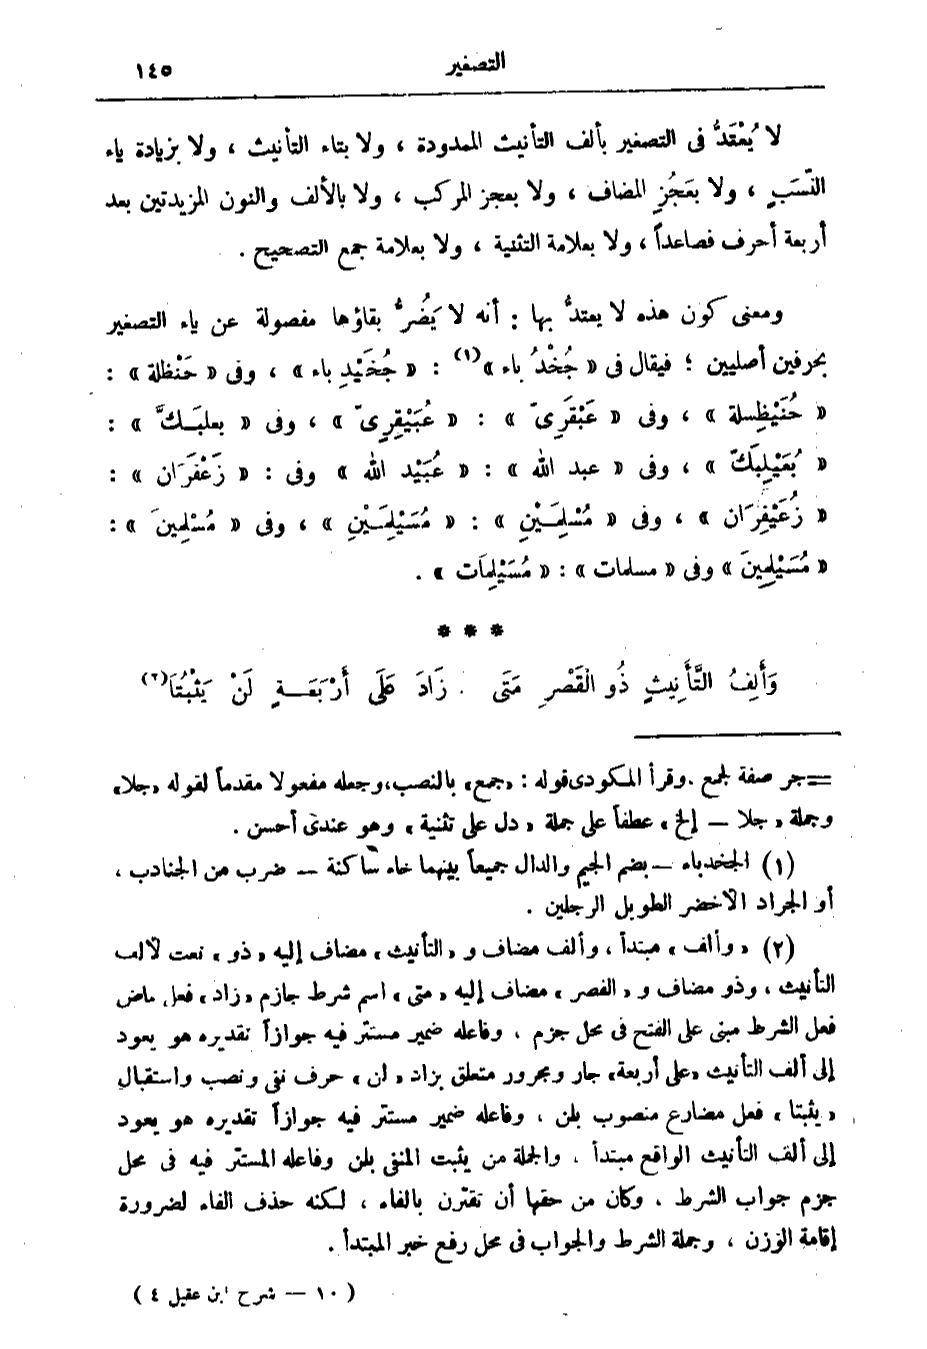 التصغير ١٤٥
لا يُعْتَدُّ فى التصغير بألف التأنيث الممدودة ، ولا بتاء التأنيث ، ولا بزيادة ياء
النَّسَبِ ، ولا بعَجُزِ المضاف ، ولا بعجز المركب ، ولا بالألف والنون المزيدتين بعد
أربعة أحرف فصاعداً ، ولا بعلامة التثنية ، ولا بعلامة جمع التصحيح .
ومعنى كون هذه لا يعتدُّ بها : أنه لا يَضُرُّ بقاؤها مفصولة عن ياء التصغير
بحرفين أصليين ؛ فيقال فى « جُخْدُباء »(١) : « جُخَيْدِباء » ، وفى « حَنْظلة » :
« حُنَيْظِلة » ، وفى « عَبْقَرِىّ » : « عُبَيْقِرِىّ » ، وفى « بعلبَكَّ » :
« بُعَيْلِبَكّ » ، وفى « عبد الله » : « عُبَيْد الله » وفى : « زَعْفَرَان » :
« زُعَيْفِرَان » ، وفى « مُسْلِمَيْنِ » : « مُسَيْلِمَيْنِ » ، وفى « مُسْلِمِينَ » :
« مُسَيْلِمِينَ » وفى « مسلمات » : « مُسَيْلِمَات » .
* * *
وَأَلِفُ التَّأنِيثِ ذُو الْقَصْرِ مَتَى . زَادَ عَلَى أَرْبَعَةٍ لَنْ يَثْبُتَا(٢)
= جر صفة لجمع . وقرأ المكودى قوله : «جمع» بالنصب، وجعله مفعولا مقدماً لقوله «جلا»
وجملة «جلا – إلخ» عطفاً على جملة «دل على تثنية» وهو عندى أحسن .
(١) الجخدباء – بضم الجيم والدال جميعاً بينهما خاء ساكنة – ضرب من الجنادب ،
أو الجراد الأخضر الطويل الرجلين .
(٢) «وألف» مبتدأ ، وألف مضاف و «التأنيث» مضاف إليه «ذو» نعت لألف
التأنيث ، وذو مضاف و «القصر» مضاف إليه «متى» اسم شرط جازم «زاد» فعل ماض
فعل الشرط مبنى على الفتح فى محل جزم ، وفاعله ضمير مستتر فيه جوازاً تقديره هو يعود
إلى ألف التأنيث «على أربعة» جار ومجرور متعلق بزاد «لن» حرف نفى ونصب واستقبال
«يثبتا» فعل مضارع منصوب بلن ، وفاعله ضمير مستتر فيه جوازاً تقديره هو يعود
إلى ألف التأنيث الواقع مبتدأ ، والجملة من يثبت المنفى بلن وفاعله المستتر فيه فى محل
جزم جواب الشرط ، وكان من حقها أن تقترن بالفاء ، لكنه حذف الفاء لضرورة
إقامة الوزن ، وجملة الشرط والجواب فى محل رفع خبر المبتدأ .
( ١٠ – شرح ابن عقيل ٤ )